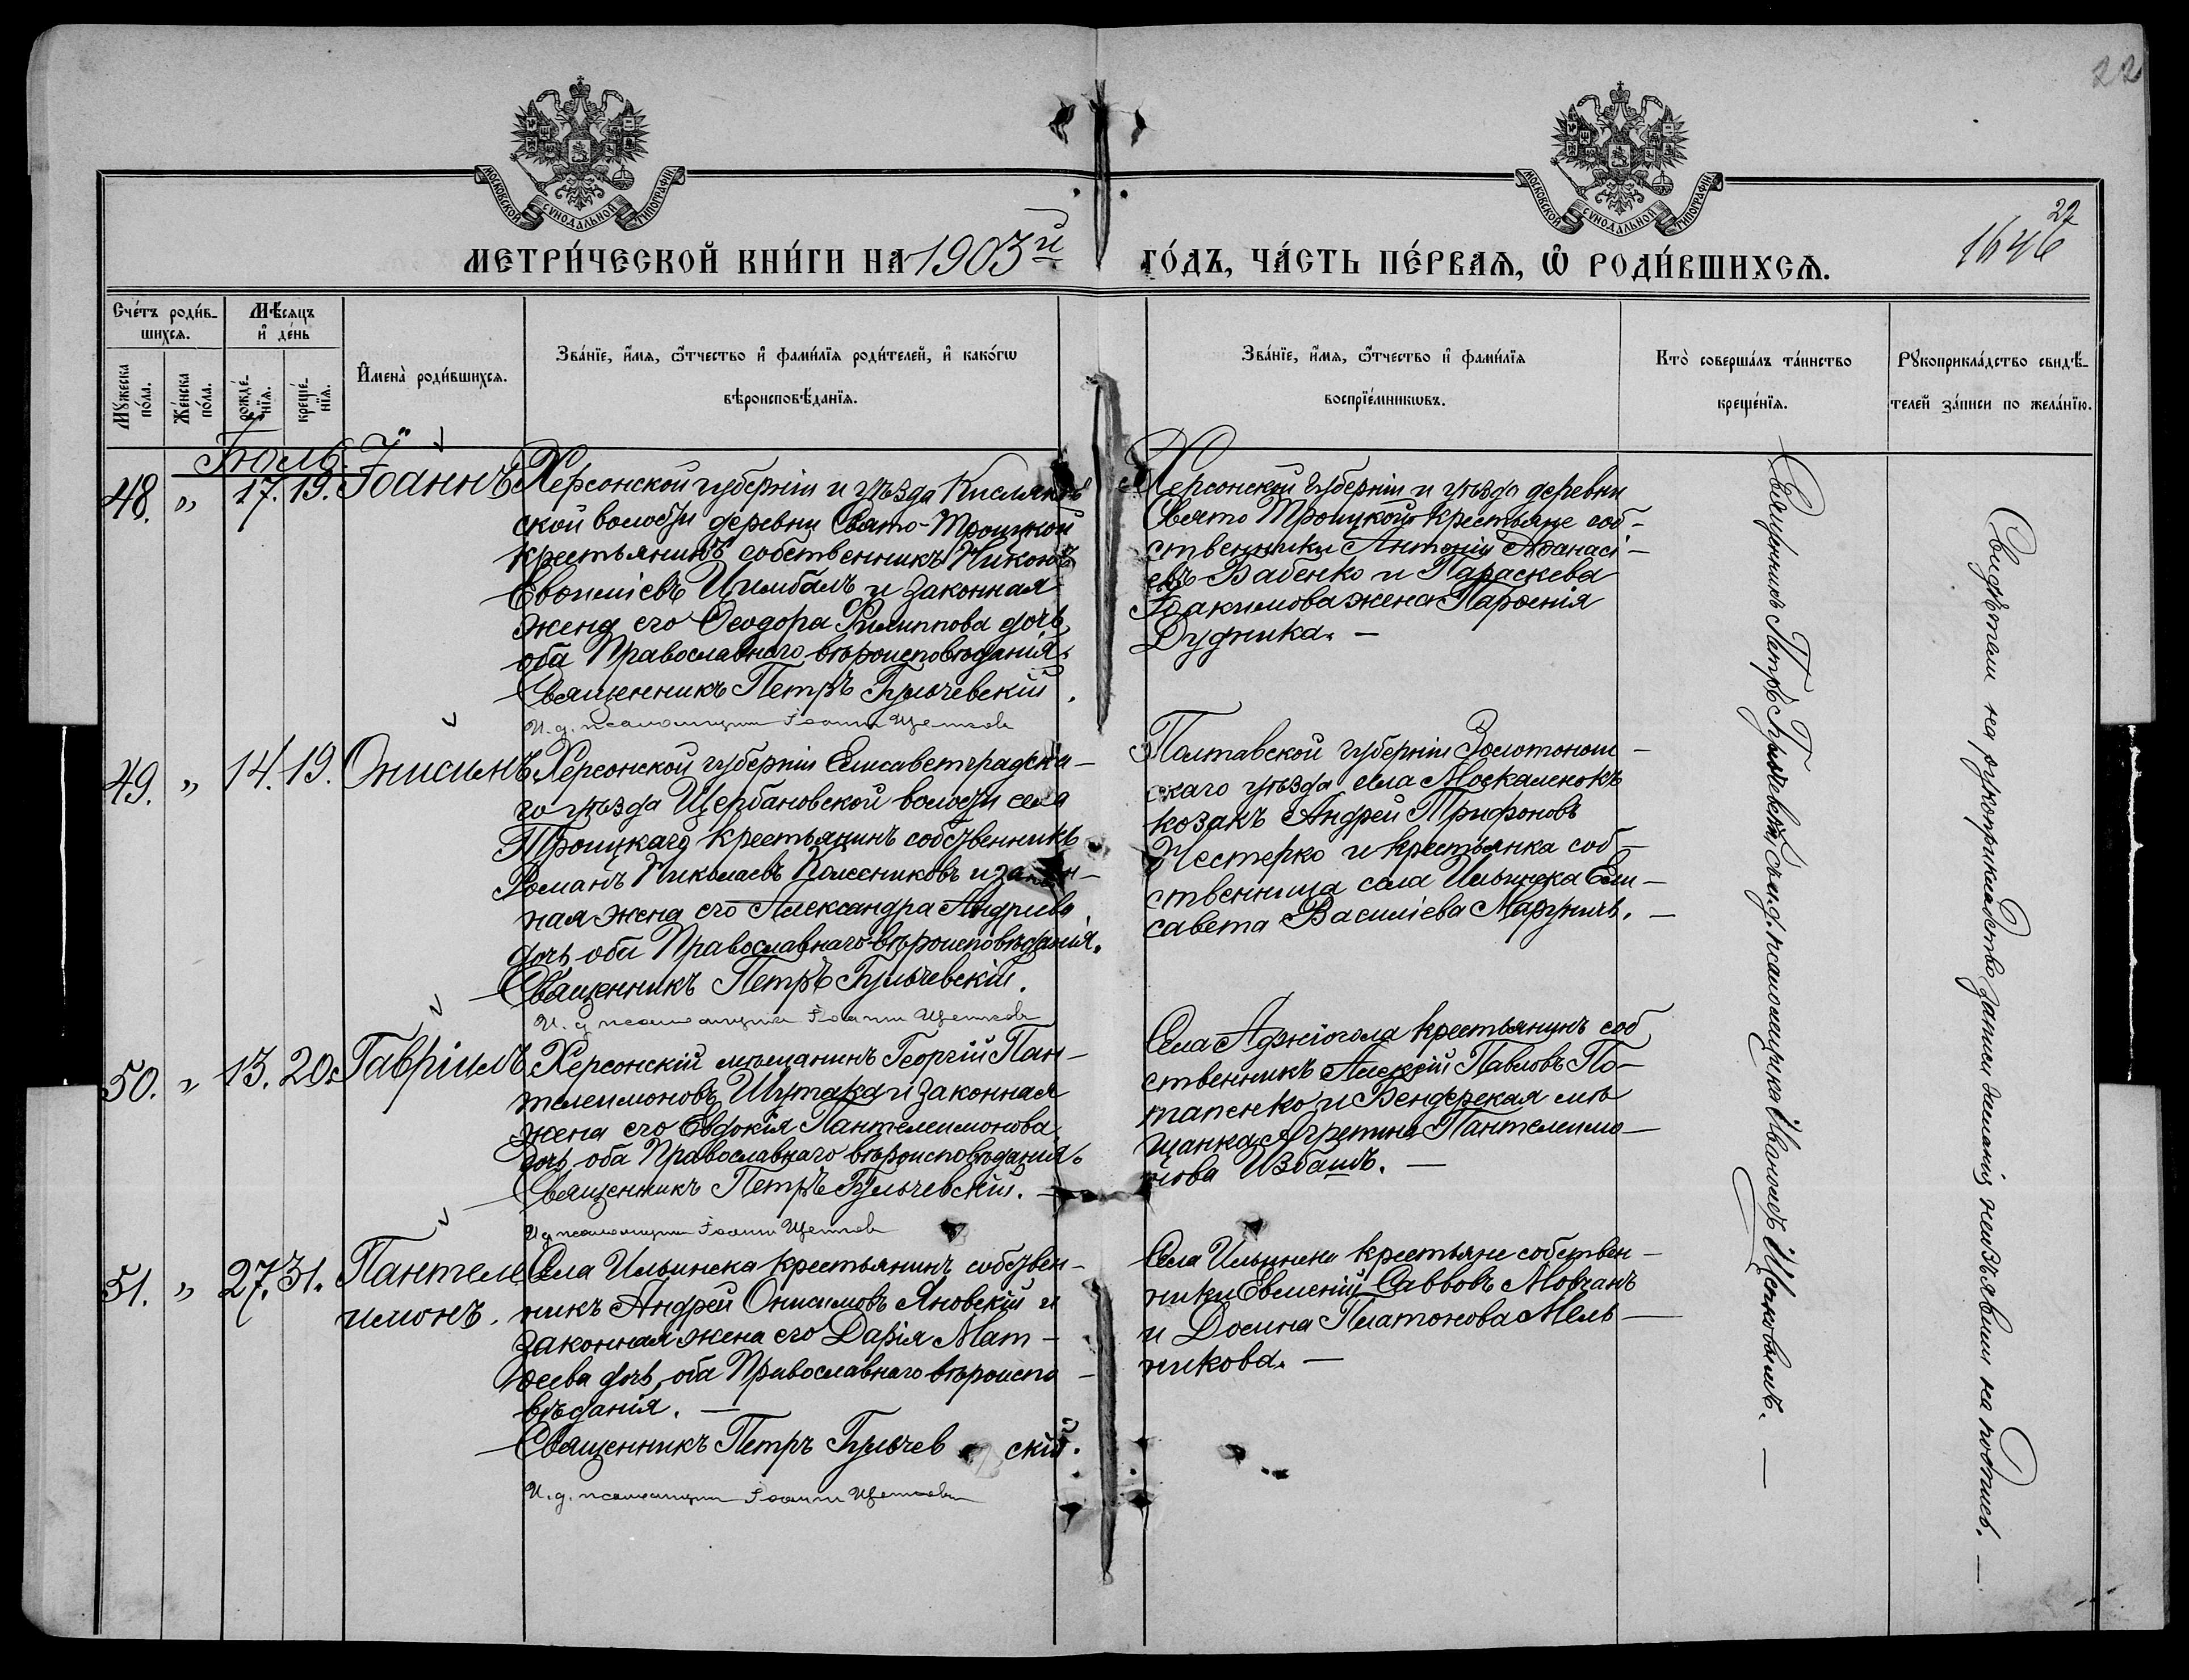 22
МОСКОВСКОЙ СѴНОДАЛЬНОЙ ТИПОГРАФІИ
МОСКОВСКОЙ СѴНОДАЛЬНОЙ ТИПОГРАФІИ
МЕТРИ́ЧЕСКОЙ КНИ́ГИ НА 1903й ГО́ДЪ, ЧА́СТЬ ПЕ́РВАЯ, Ѡ҆ РОДИ́ВШИХСЯ.
22
1646
Сче́тъ роди́в-
шихся.
Мѣ́сяцъ
и҆ де́нь
Мꙋ́жеска по́ла.
Же́нска по́ла.
рожде́-нїя.
креще́-нїя.
И҆мена̀ роди́вшихся.
Зва́нїе, и҆́мя, ѻ҆́тчество и҆ фами́лїя роди́телей, и҆ како́гѡ
вѣроисповѣ́данїя.
Зва́нїе, и҆́мя, ѻ҆́тчество и҆ фами́лїя
воспрїе́мникѡвъ.
Кто̀ соверша́лъ та́инство
креще́нїя.
Рꙋкоприкла́дство свидѣ́-
телей за́писи по жела́нїю.
Іюль.
48. " 17. 19. Іоаннъ
Херсонской губерніи и уѣзда Кисляков
ской волости деревни Свято-Троицкой
крестьянинъ собственникъ Никонъ
Евфиміевъ Цимбалъ и законная
жена его Ѳеодора Филиппова дочь
оба Православнаго вѣроисповѣданія.
Священникъ Петръ Бульчевскій.
И. д. псаломщика Іоаннъ Щетковъ
Херсонской губерніи и уѣзда деревни
Свято Троицкой крестьяне соб-
ственники Антоній Аѳанасі-
евъ Бабенко и Параскева
Іоакимова жена Парѳенія
Дудника. —
49. " 14. 19. Онисимъ
Херсонской губерніи Елисаветградска-
го уѣзда Щербановской волости села
Троицкаго крестьянинъ собственникъ
Романъ Николаевъ Колесниковъ и закон-
ная жена его Александра Андреева
дочь оба Православнаго вѣроисповѣданія.
Священникъ Петръ Бульчевскій.
И. д. псаломщика Іоаннъ Щетковъ
Полтавской губерніи Золотонош-
скаго уѣзда села Москаленокъ
козакъ Андрей Трифоновъ
Нестерко и крестьянка соб-
ственница села Ильинска Ели-
савета Василіева Марунич. —
50. " 13. 20. Гавріилъ
Херсонскій мѣщанинъ Георгій Пан-
телеимоновъ Шутака и законная
жена его Евдокія Пантелеимонова
дочь, оба Православнаго вѣроисповѣданія.
Священникъ Петръ Бульчевскій. —
И д псаломщика Іоаннъ Щетковъ
Села Аджіогола крестьянинъ соб
ственникъ Алексій Павловъ По-
тапенко и Бендерская мѣ
щанка Агрепина Пантелеимо-
нова Избашъ. —
51. " 27. 31. Пантеле
имонъ.
Села Ильинска крестьянинъ собствен-
никъ Андрей Онисимовъ Яновскій и
законная жена его Дарія Мат-
ѳеева дочь, оба Православнаго вѣроиспо-
вѣданія. —
Священникъ Петръ Бульчевскій.
И. д. псаломщика Іоаннъ Щетковъ
Села Ильинска крестьяне собствен-
ники Евменій Саввовъ Мовчанъ
и Домна Платонова Мель-
никова. —
Священникъ Петръ Бульчевскій съ и.д. псаломщика Іванномъ Щетковымъ. —
Свидѣтели на рукоприкладство записи желанія неизъявили на подпись. —